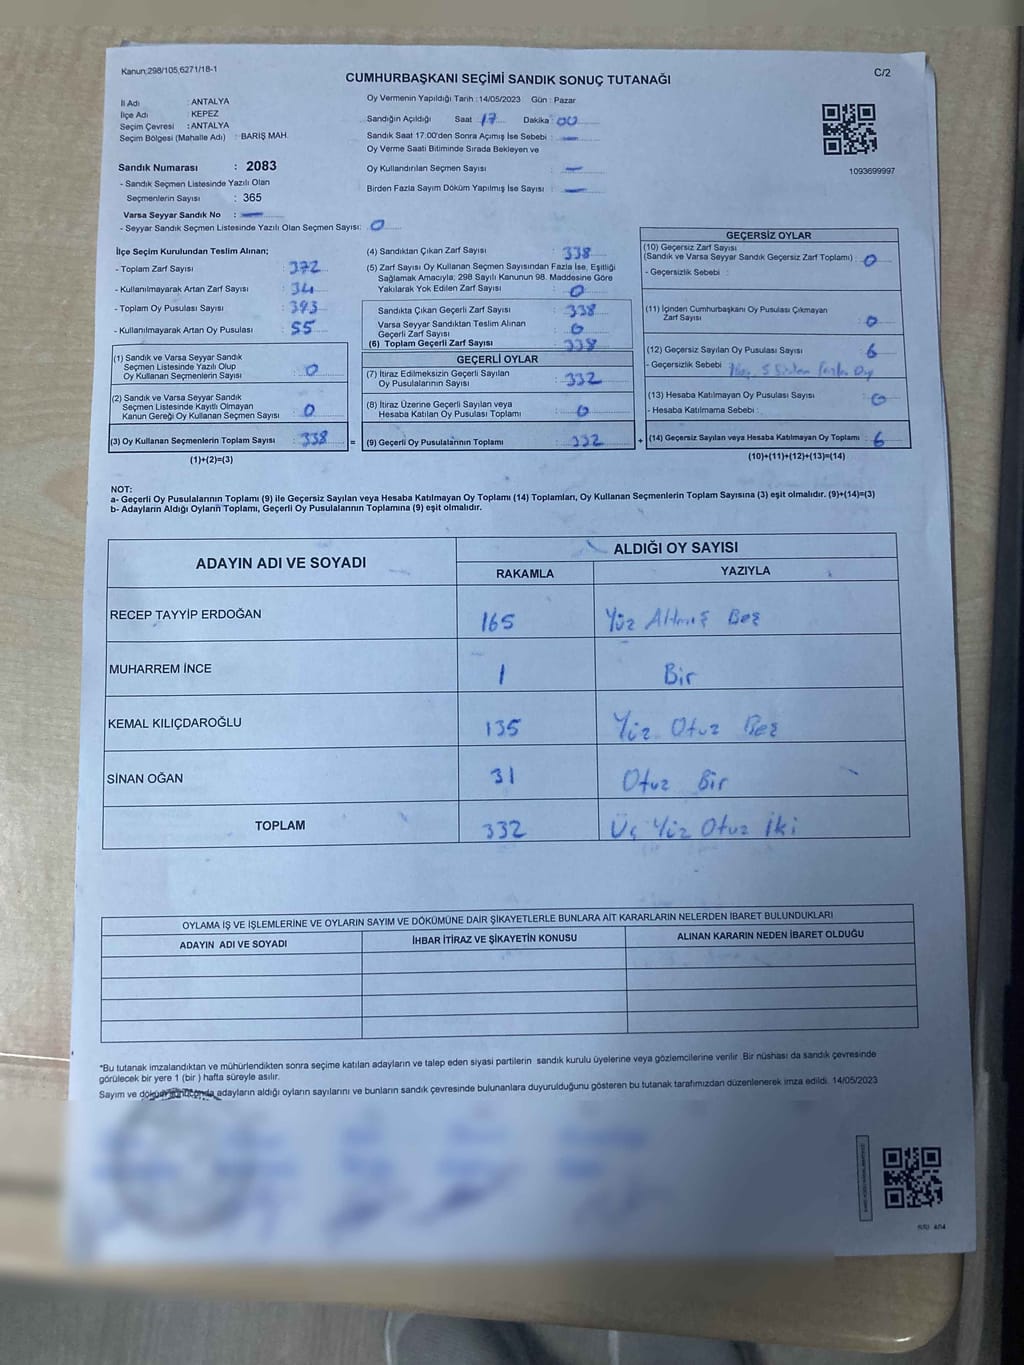 Kanun:298/105,6271/18-1
CUMHURBAŞKANI SEÇİMİ SANDIK SONUÇ TUTANAĞI
C/2
İl Adı : ANTALYA
İlçe Adı : KEPEZ
Seçim Çevresi : ANTALYA
Seçim Bölgesi (Mahalle Adı) : BARIŞ MAH.
Oy Vermenin Yapıldığı Tarih : 14/05/2023 Gün : Pazar
Sandığın Açıldığı Saat 17 Dakika 00
Sandık Saat 17:00'den Sonra Açımış İse Sebebi : —
Oy Verme Saati Bitiminde Sırada Bekleyen ve
Oy Kullandırılan Seçmen Sayısı : —
Birden Fazla Sayım Döküm Yapılmış İse Sayısı : —
1093699997
Sandık Numarası : 2083
- Sandık Seçmen Listesinde Yazılı Olan
Seçmenlerin Sayısı : 365
Varsa Seyyar Sandık No : —
- Seyyar Sandık Seçmen Listesinde Yazılı Olan Seçmen Sayısı: 0
İlçe Seçim Kurulundan Teslim Alınan;
- Toplam Zarf Sayısı : 372
- Kullanılmayarak Artan Zarf Sayısı : 34
- Toplam Oy Pusulası Sayısı : 393
- Kullanılmayarak Artan Oy Pusulası : 55
(1) Sandık ve Varsa Seyyar Sandık
Seçmen Listesinde Yazılı Olup
Oy Kullanan Seçmenlerin Sayısı : 0
(2) Sandık ve Varsa Seyyar Sandık
Seçmen Listesinde Kayıtlı Olmayan
Kanun Gereği Oy Kullanan Seçmen Sayısı : 0
(3) Oy Kullanan Seçmenlerin Toplam Sayısı : 338 =
(1)+(2)=(3)
(4) Sandıktan Çıkan Zarf Sayısı : 338
(5) Zarf Sayısı Oy Kullanan Seçmen Sayısından Fazla İse, Eşitliği
Sağlamak Amacıyla; 298 Sayılı Kanunun 98. Maddesine Göre
Yakılarak Yok Edilen Zarf Sayısı : 0
Sandıkta Çıkan Geçerli Zarf Sayısı : 338
Varsa Seyyar Sandıktan Teslim Alınan
Geçerli Zarf Sayısı : 0
(6) Toplam Geçerli Zarf Sayısı : 338
GEÇERLİ OYLAR
(7) İtiraz Edilmeksizin Geçerli Sayılan
Oy Pusulalarının Sayısı : 332
(8) İtiraz Üzerine Geçerli Sayılan veya
Hesaba Katılan Oy Pusulası Toplamı : 0
(9) Geçerli Oy Pusulalarının Toplamı : 332 +
GEÇERSİZ OYLAR
(10) Geçersiz Zarf Sayısı
(Sandık ve Varsa Seyyar Sandık Geçersiz Zarf Toplamı) : 0
- Geçersizlik Sebebi :
(11) İçinden Cumhurbaşkanı Oy Pusulası Çıkmayan
Zarf Sayısı : 0
(12) Geçersiz Sayılan Oy Pusulası Sayısı : 6
- Geçersizlik Sebebi : fazla Oy
(13) Hesaba Katılmayan Oy Pusulası Sayısı : 0
- Hesaba Katılmama Sebebi :
(14) Geçersiz Sayılan veya Hesaba Katılmayan Oy Toplamı : 6
(10)+(11)+(12)+(13)=(14)
NOT:
a- Geçerli Oy Pusulalarının Toplamı (9) ile Geçersiz Sayılan veya Hesaba Katılmayan Oy Toplamı (14) Toplamları, Oy Kullanan Seçmenlerin Toplam Sayısına (3) eşit olmalıdır. (9)+(14)=(3)
b- Adayların Aldığı Oyların Toplamı, Geçerli Oy Pusulalarının Toplamına (9) eşit olmalıdır.
ADAYIN ADI VE SOYADI
ALDIĞI OY SAYISI
RAKAMLA YAZIYLA
RECEP TAYYİP ERDOĞAN 165 Yüz Altmış Beş
MUHARREM İNCE 1 Bir
KEMAL KILIÇDAROĞLU 135 Yüz Otuz Beş
SİNAN OĞAN 31 Otuz Bir
TOPLAM 332 Üç Yüz Otuz İki
OYLAMA İŞ VE İŞLEMLERİNE VE OYLARIN SAYIM VE DÖKÜMÜNE DAİR ŞİKAYETLERLE BUNLARA AİT KARARLARIN NELERDEN İBARET BULUNDUKLARI
ADAYIN ADI VE SOYADI İHBAR İTİRAZ VE ŞİKAYETİN KONUSU ALINAN KARARIN NEDEN İBARET OLDUĞU
*Bu tutanak imzalandıktan ve mühürlendikten sonra seçime katılan adayların ve talep eden siyasi partilerin sandık kurulu üyelerine veya gözlemcilerine verilir. Bir nüshası da sandık çevresinde
görülecek bir yere 1 (bir ) hafta süreyle asılır.
Sayım ve döküm sonucunda adayların aldığı oyların sayılarını ve bunların sandık çevresinde bulunanlara duyurulduğunu gösteren bu tutanak tarafımızdan düzenlenerek imza edildi. 14/05/2023